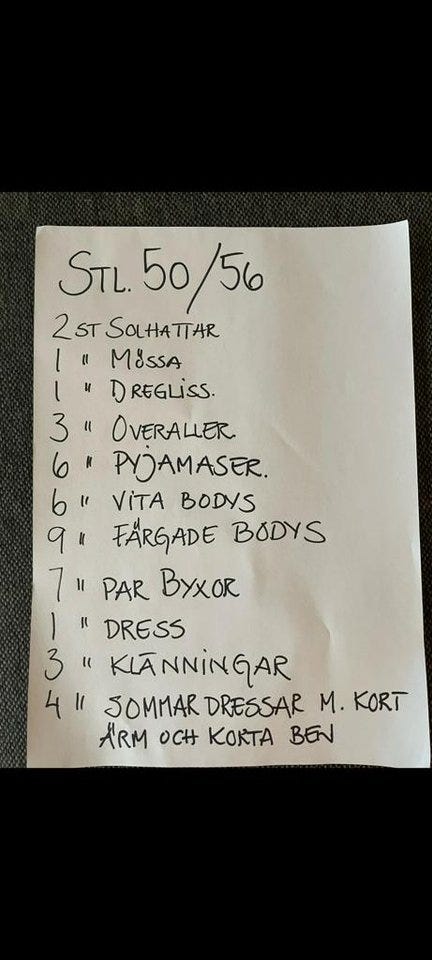 STL. 50/56
2 ST SOLHATTAR
1 " MÖSSA
1 " DREGLISS.
3 " OVERALLER.
6 " PYJAMASER.
6 " VITA BODYS
9 " FÄRGADE BODYS
7 " PAR BYXOR
1 " DRESS
3 " KLÄNNINGAR
4 " SOMMARDRESSAR M. KORT
ÄRM OCH KORTA BEN